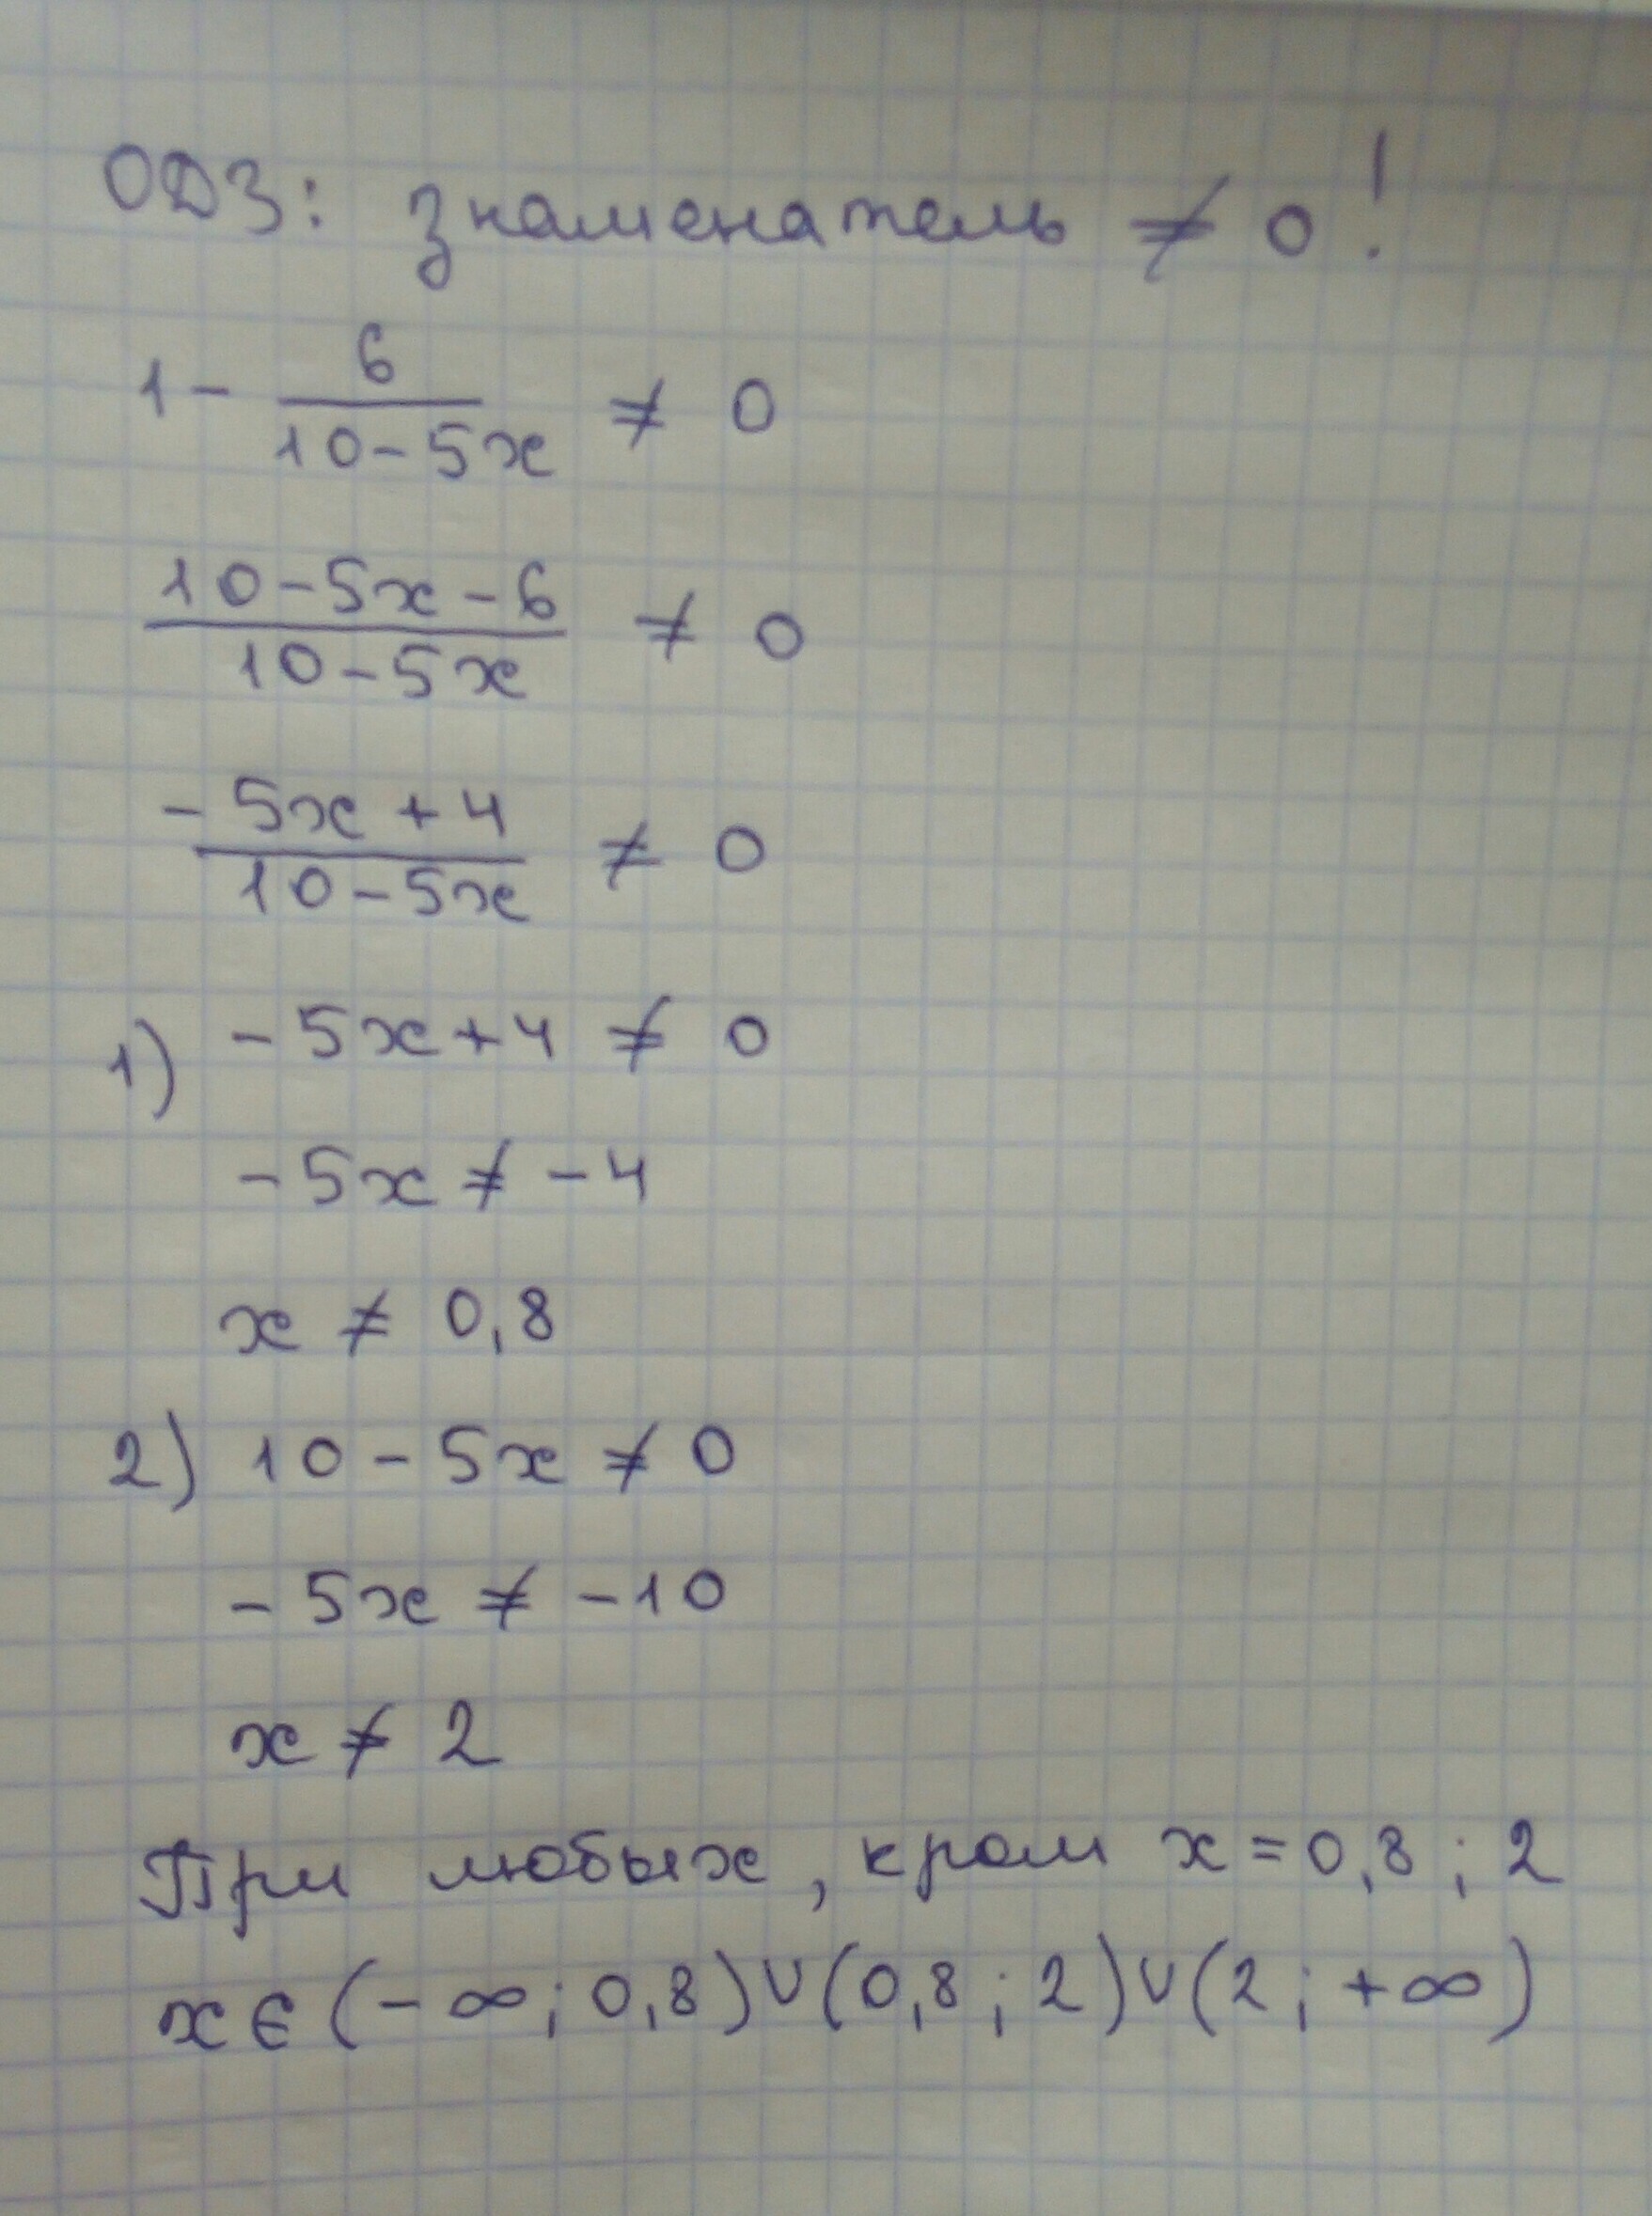 ОДЗ: знаменатель ≠ 0!
1 - 6/(10-5x) ≠ 0
(10-5x-6)/(10-5x) ≠ 0
(-5x+4)/(10-5x) ≠ 0
1) -5x+4 ≠ 0
-5x ≠ -4
x ≠ 0,8
2) 10-5x ≠ 0
-5x ≠ -10
x ≠ 2
При любых, кром x=0,8; 2
x∈(-∞; 0,8)∪(0,8; 2)∪(2; +∞)